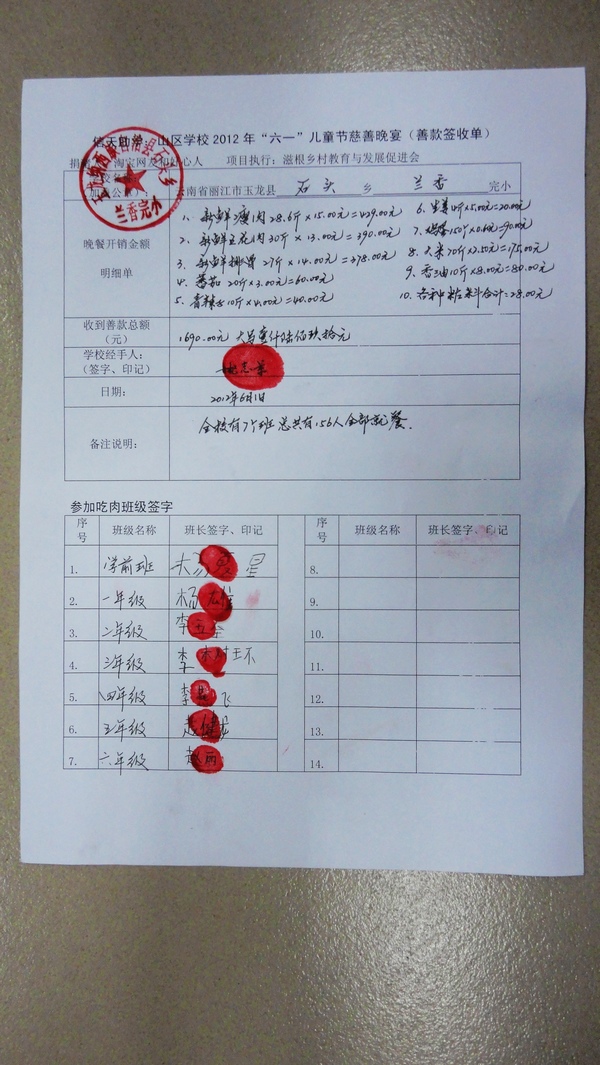 信天助学 山区学校2012年“六一”儿童节慈善晚宴（善款签收单）
淘宝网友和好心人 项目执行：滋根乡村教育与发展促进会
云南省丽江市玉龙县 石头 乡 兰香 完小
兰香完小
晚餐开销金额
明细单
1. 新鲜瘦肉 28.6斤×15.00元=429.00元
2. 新鲜五花肉 30斤×13.00元=390.00元
3. 新鲜排骨 27斤×14.00元=378.00元
4. 蕃茄 20斤×3.00元=60.00元
5. 青辣子10斤×4.00元=40.00元
6. 生姜4斤×5.00元=20.00元
7. 鸡蛋150个×0.6元=90.00元
8. 大米70斤×2.50元=175.00元
9. 香油10斤×8.00元=80.00元
10. 各种 料合计=28.00元
收到善款总额
（元）
1690.00元 大写壹仟陆佰玖拾元
学校经手人：
（签字、印记）
日期：
2012年6月1日
备注说明：
全校有7个班 总共有156人全部就餐.
参加吃肉班级签字
序号 班级名称 班长签字、印记 序号 班级名称 班长签字、印记
1. 学前班 8.
2. 一年级 杨 雄 9.
3. 二年级 李五 10.
4. 三年级 李 环 11.
5. 四年级 李 飞 12.
6. 五年级 赵健龙 13.
7. 六年级 赵丽 14.